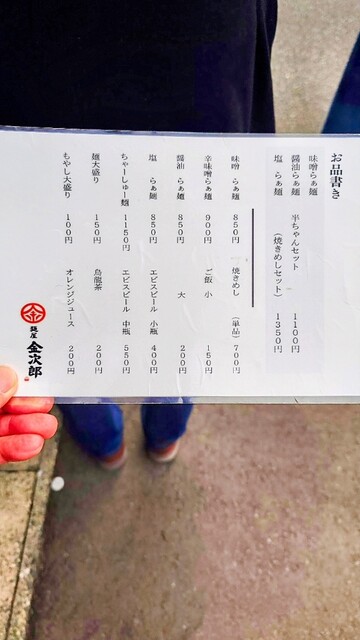 お品書き
味噌らぁ麺
醤油らぁ麺 半ちゃんセット 1100円
塩 らぁ麺 （焼きめしセット） 1350円
味噌 らぁ麺 850円 焼きめし （単品）700円
辛味噌らぁ麺 900円 ご飯 小 150円
醤油 らぁ麺 850円 大 200円
塩 らぁ麺 850円 ヱビスビール 小瓶 400円
ちゃーしゅー麺 1150円 ヱビスビール 中瓶 550円
麺大盛り 150円 烏龍茶 200円
もやし大盛り 100円 オレンジジュース 200円
金
麺屋 金次郎